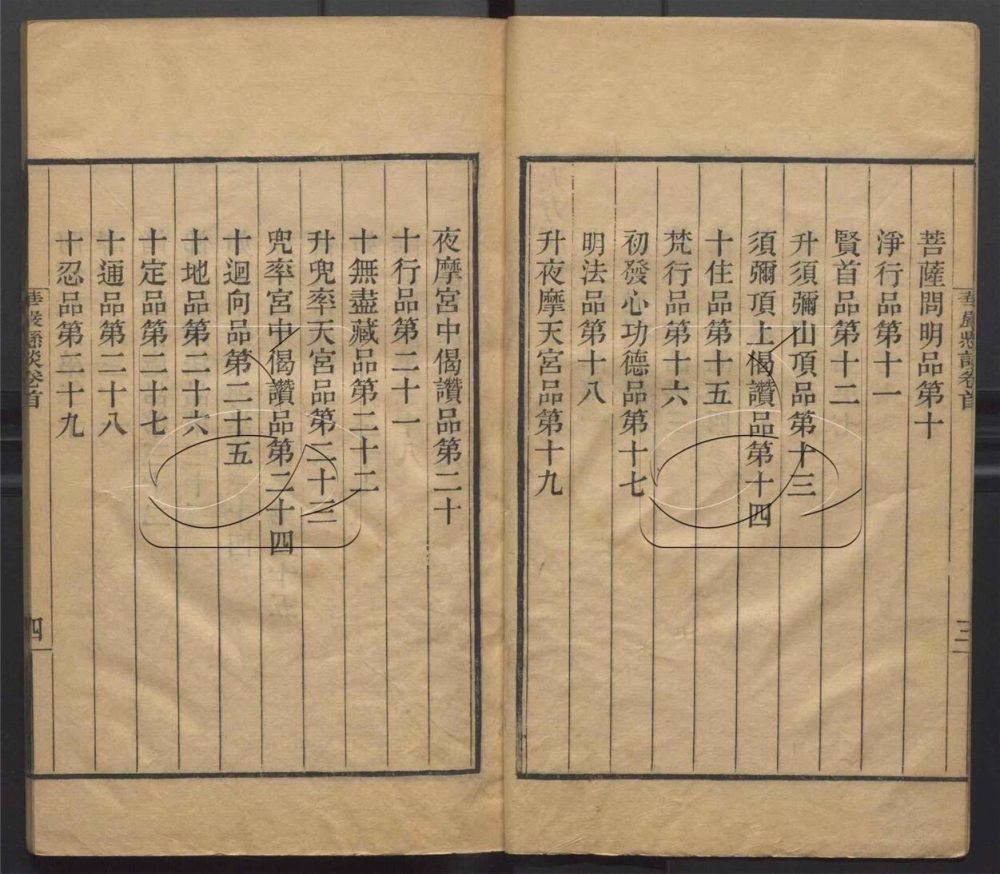 華嚴懸談卷首
三
菩薩問明品第十
淨行品第十一
賢首品第十二
升須彌山頂品第十三
須彌頂上偈讚品第十四
十住品第十五
梵行品第十六
初發心功德品第十七
明法品第十八
升夜摩天宮品第十九
夜摩宮中偈讚品第二十
十行品第二十一
十無盡藏品第二十二
升兜率天宮品第二十三
兜率宮中偈讚品第二十四
十迴向品第二十五
十地品第二十六
十定品第二十七
十通品第二十八
十忍品第二十九
華嚴懸談卷首
四